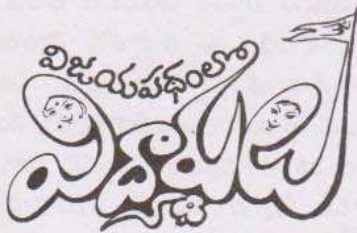 విజయపథంలో
విద్యార్థులు